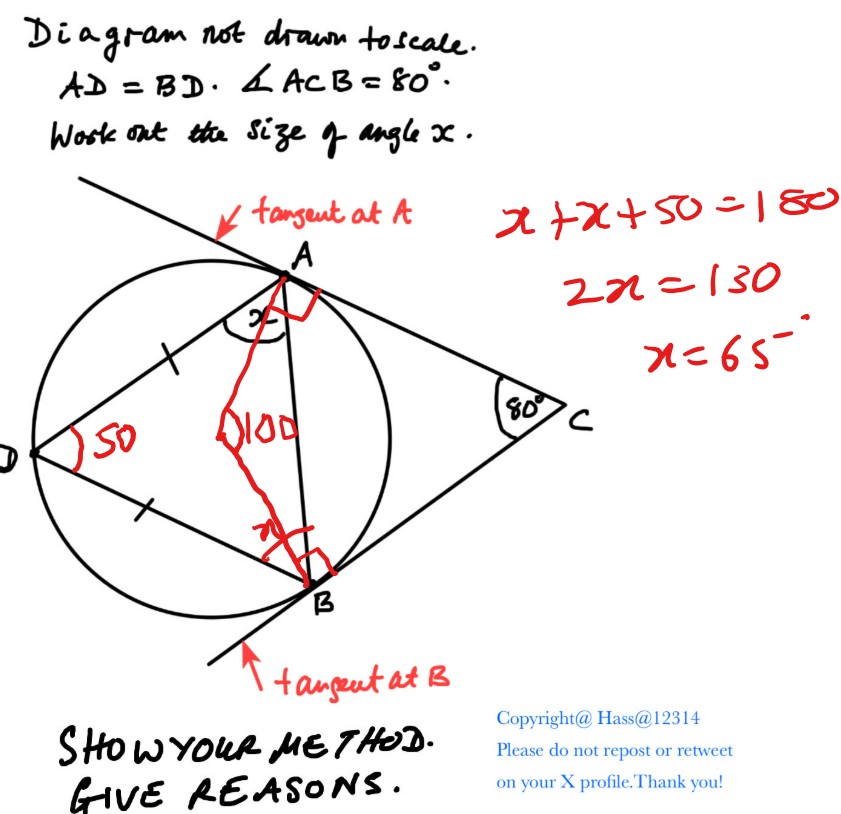 Diagram not drawn to scale.
AD = BD. ∡ACB = 80°.
Work out the size of angle x.
tangent at A
A
x
x + x + 50 = 180
2x = 130
x = 65
80°
C
D
50
100
x
B
tangent at B
SHOW YOUR METHOD.
GIVE REASONS.
Copyright@ Hass@12314
Please do not repost or retweet
on your X profile.Thank you!